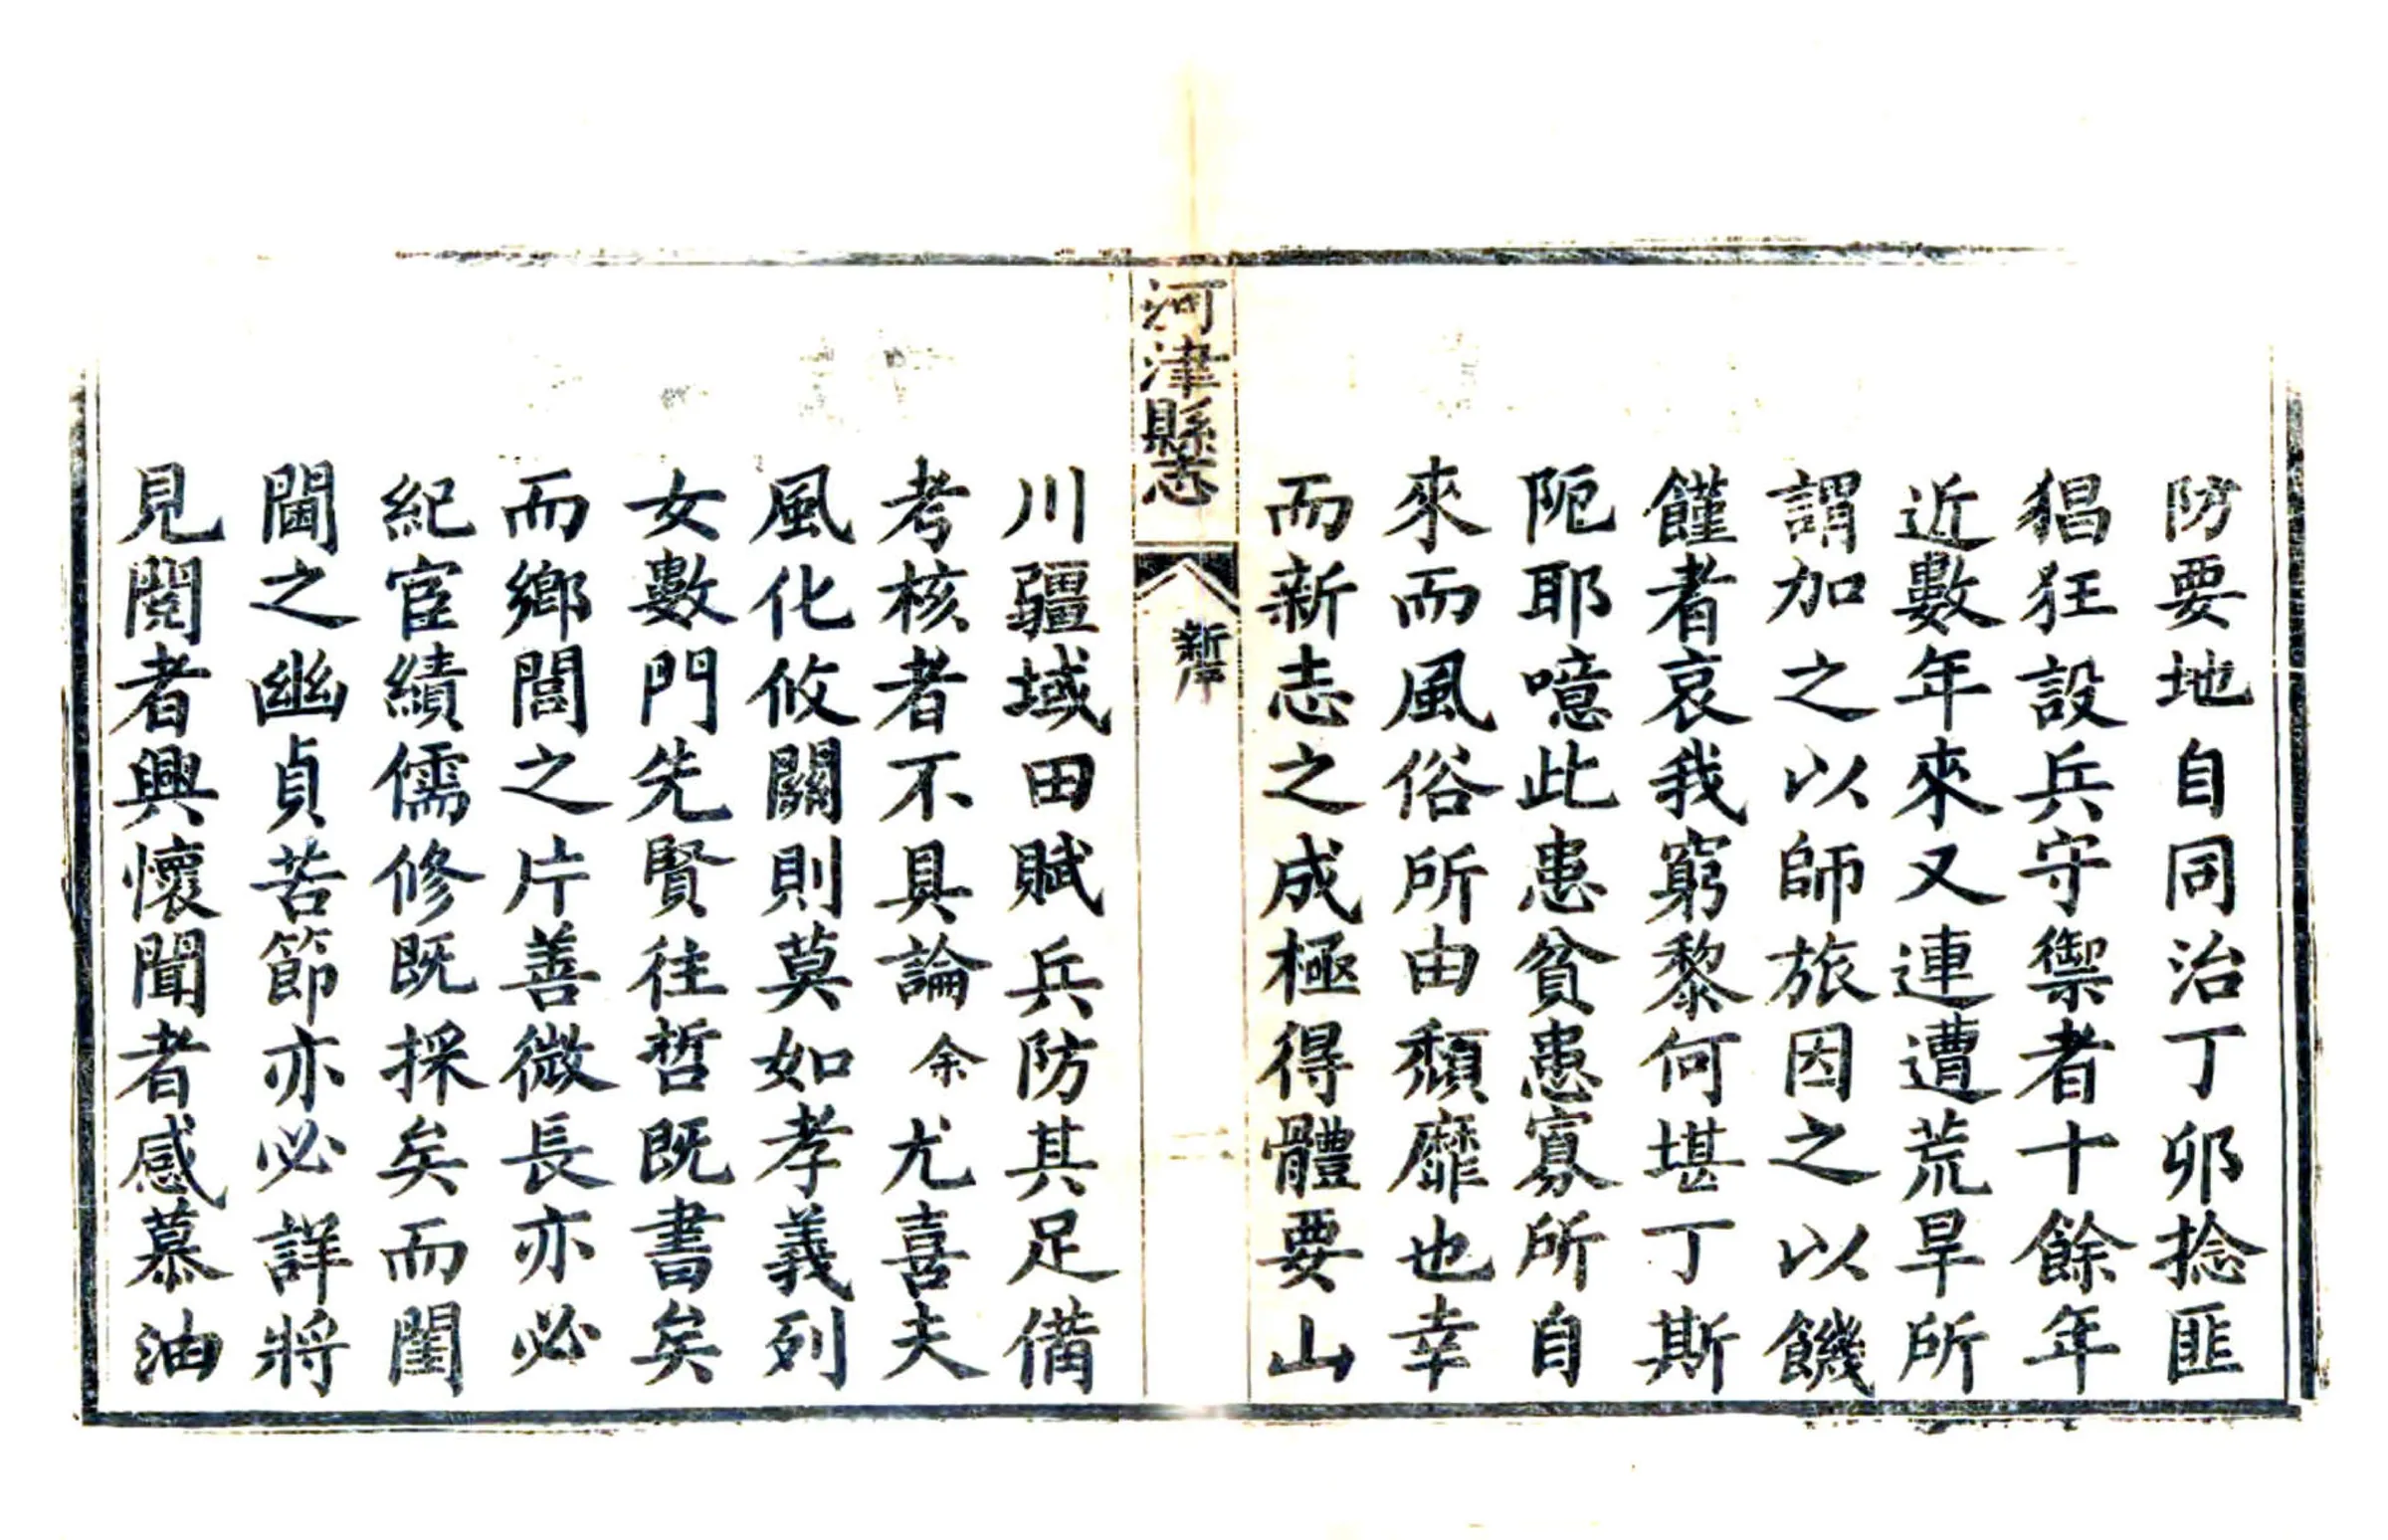 防要地自同治丁卯捻匪
猖狂設兵守禦者十餘年
近數年來又連遭荒旱所
謂加之以師旅因之以饑
饉者哀我窮黎何堪丁斯
阨耶噫此患貧患寡所自
來而風俗所由頹靡也幸
而新志之成極得體要山
河津縣志
新序
二
川疆域田賦兵防其足備
考核者不具論余尤喜夫
風化攸關則莫如孝義列
女數門先賢往哲既書矣
而鄉閭之片善微長亦必
紀宦績儒修既採矣而閨
閫之幽貞苦節亦必詳將
見閱者興懷聞者感慕油